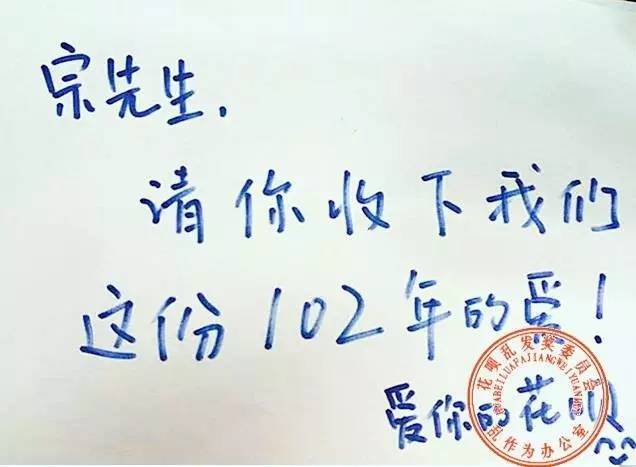 宗先生,
请你收下我们
这份102年的爱!
爱你的花呗
花呗乱发奖委员会
乱作为办公室